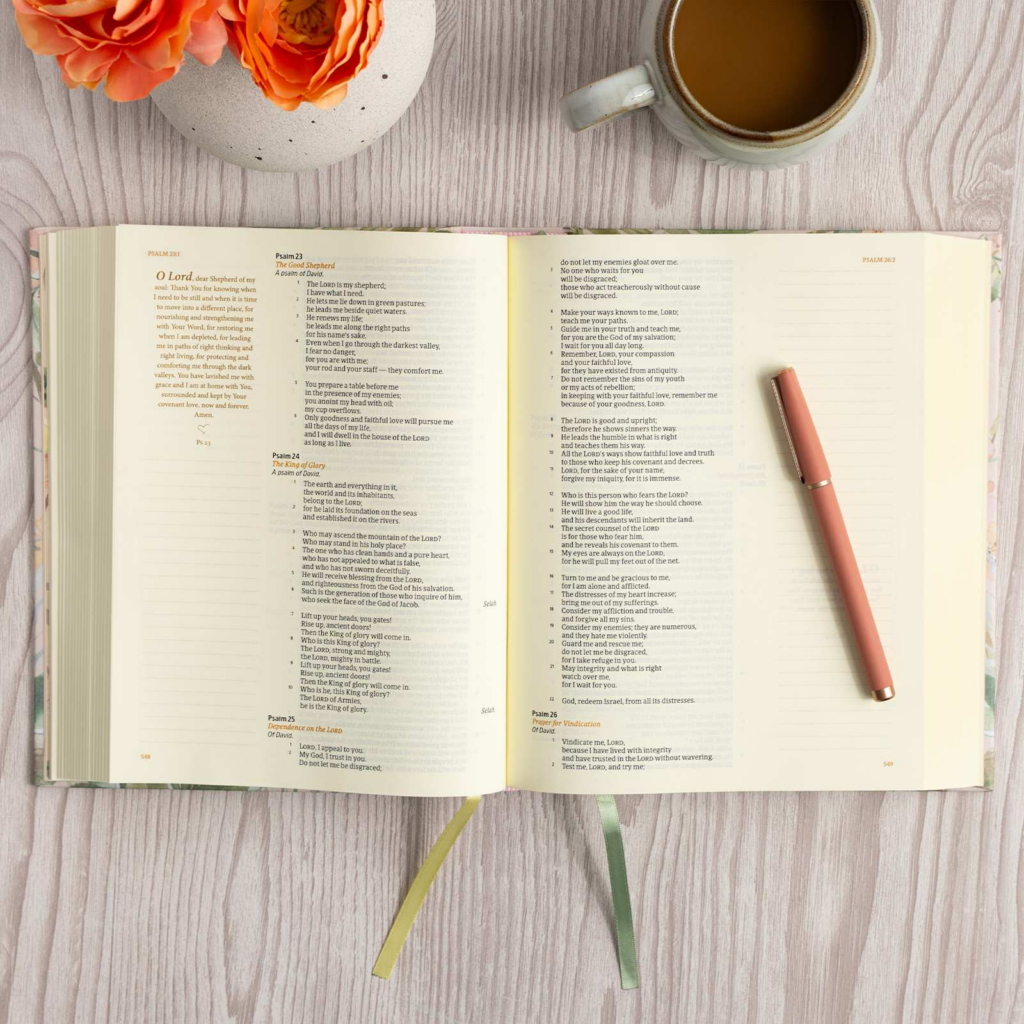 PSALM 23:1
O Lord, dear Shepherd of my
soul: Thank You for knowing when
I need to be still and when it is time
to move into a different place, for
nourishing and strengthening me
with Your Word, for restoring me
when I am depleted, for leading
me in paths of right thinking and
right living, for protecting and
comforting me through the dark
valleys. You have lavished me with
grace and I am at home with You,
surrounded and kept by Your
covenant love, now and forever.
Amen.
Ps 23
548
Psalm 23
The Good Shepherd
A psalm of David.
1 The LORD is my shepherd;
I have what I need.
2 He lets me lie down in green pastures;
he leads me beside quiet waters.
3 He renews my life;
he leads me along the right paths
for his name's sake.
4 Even when I go through the darkest valley,
I fear no danger,
for you are with me;
your rod and your staff — they comfort me.
5 You prepare a table before me
in the presence of my enemies;
you anoint my head with oil;
my cup overflows.
6 Only goodness and faithful love will pursue me
all the days of my life,
and I will dwell in the house of the LORD
as long as I live.
Psalm 24
The King of Glory
A psalm of David.
1 The earth and everything in it,
the world and its inhabitants,
belong to the LORD;
2 for he laid its foundation on the seas
and established it on the rivers.
3 Who may ascend the mountain of the LORD?
Who may stand in his holy place?
4 The one who has clean hands and a pure heart,
who has not appealed to what is false,
and who has not sworn deceitfully.
5 He will receive blessing from the LORD,
and righteousness from the God of his salvation.
6 Such is the generation of those who inquire of him,
who seek the face of the God of Jacob. Selah
7 Lift up your heads, you gates!
Rise up, ancient doors!
Then the King of glory will come in.
8 Who is this King of glory?
The LORD, strong and mighty,
the LORD, mighty in battle.
9 Lift up your heads, you gates!
Rise up, ancient doors!
Then the King of glory will come in.
10 Who is he, this King of glory?
The LORD of Armies,
he is the King of glory. Selah
Psalm 25
Dependence on the LORD
Of David.
1 LORD, I appeal to you.
2 My God, I trust in you.
Do not let me be disgraced;
do not let my enemies gloat over me.
3 No one who waits for you
will be disgraced;
those who act treacherously without cause
will be disgraced.
4 Make your ways known to me, LORD;
teach me your paths.
5 Guide me in your truth and teach me,
for you are the God of my salvation;
I wait for you all day long.
6 Remember, LORD, your compassion
and your faithful love,
for they have existed from antiquity.
7 Do not remember the sins of my youth
or my acts of rebellion;
in keeping with your faithful love, remember me
because of your goodness, LORD.
8 The LORD is good and upright;
therefore he shows sinners the way.
9 He leads the humble in what is right
and teaches them his way.
10 All the LORD's ways show faithful love and truth
to those who keep his covenant and decrees.
11 LORD, for the sake of your name,
forgive my iniquity, for it is immense.
12 Who is this person who fears the LORD?
He will show him the way he should choose.
13 He will live a good life,
and his descendants will inherit the land.
14 The secret counsel of the LORD
is for those who fear him,
and he reveals his covenant to them.
15 My eyes are always on the LORD,
for he will pull my feet out of the net.
16 Turn to me and be gracious to me,
for I am alone and afflicted.
17 The distresses of my heart increase;
bring me out of my sufferings.
18 Consider my affliction and trouble,
and forgive all my sins.
19 Consider my enemies; they are numerous,
and they hate me violently.
20 Guard me and rescue me;
do not let me be disgraced,
for I take refuge in you.
21 May integrity and what is right
watch over me,
for I wait for you.
22 God, redeem Israel, from all its distresses.
Psalm 26
Prayer for Vindication
Of David.
1 Vindicate me, LORD,
because I have lived with integrity
and have trusted in the LORD without wavering.
2 Test me, LORD, and try me;
PSALM 26:2
549